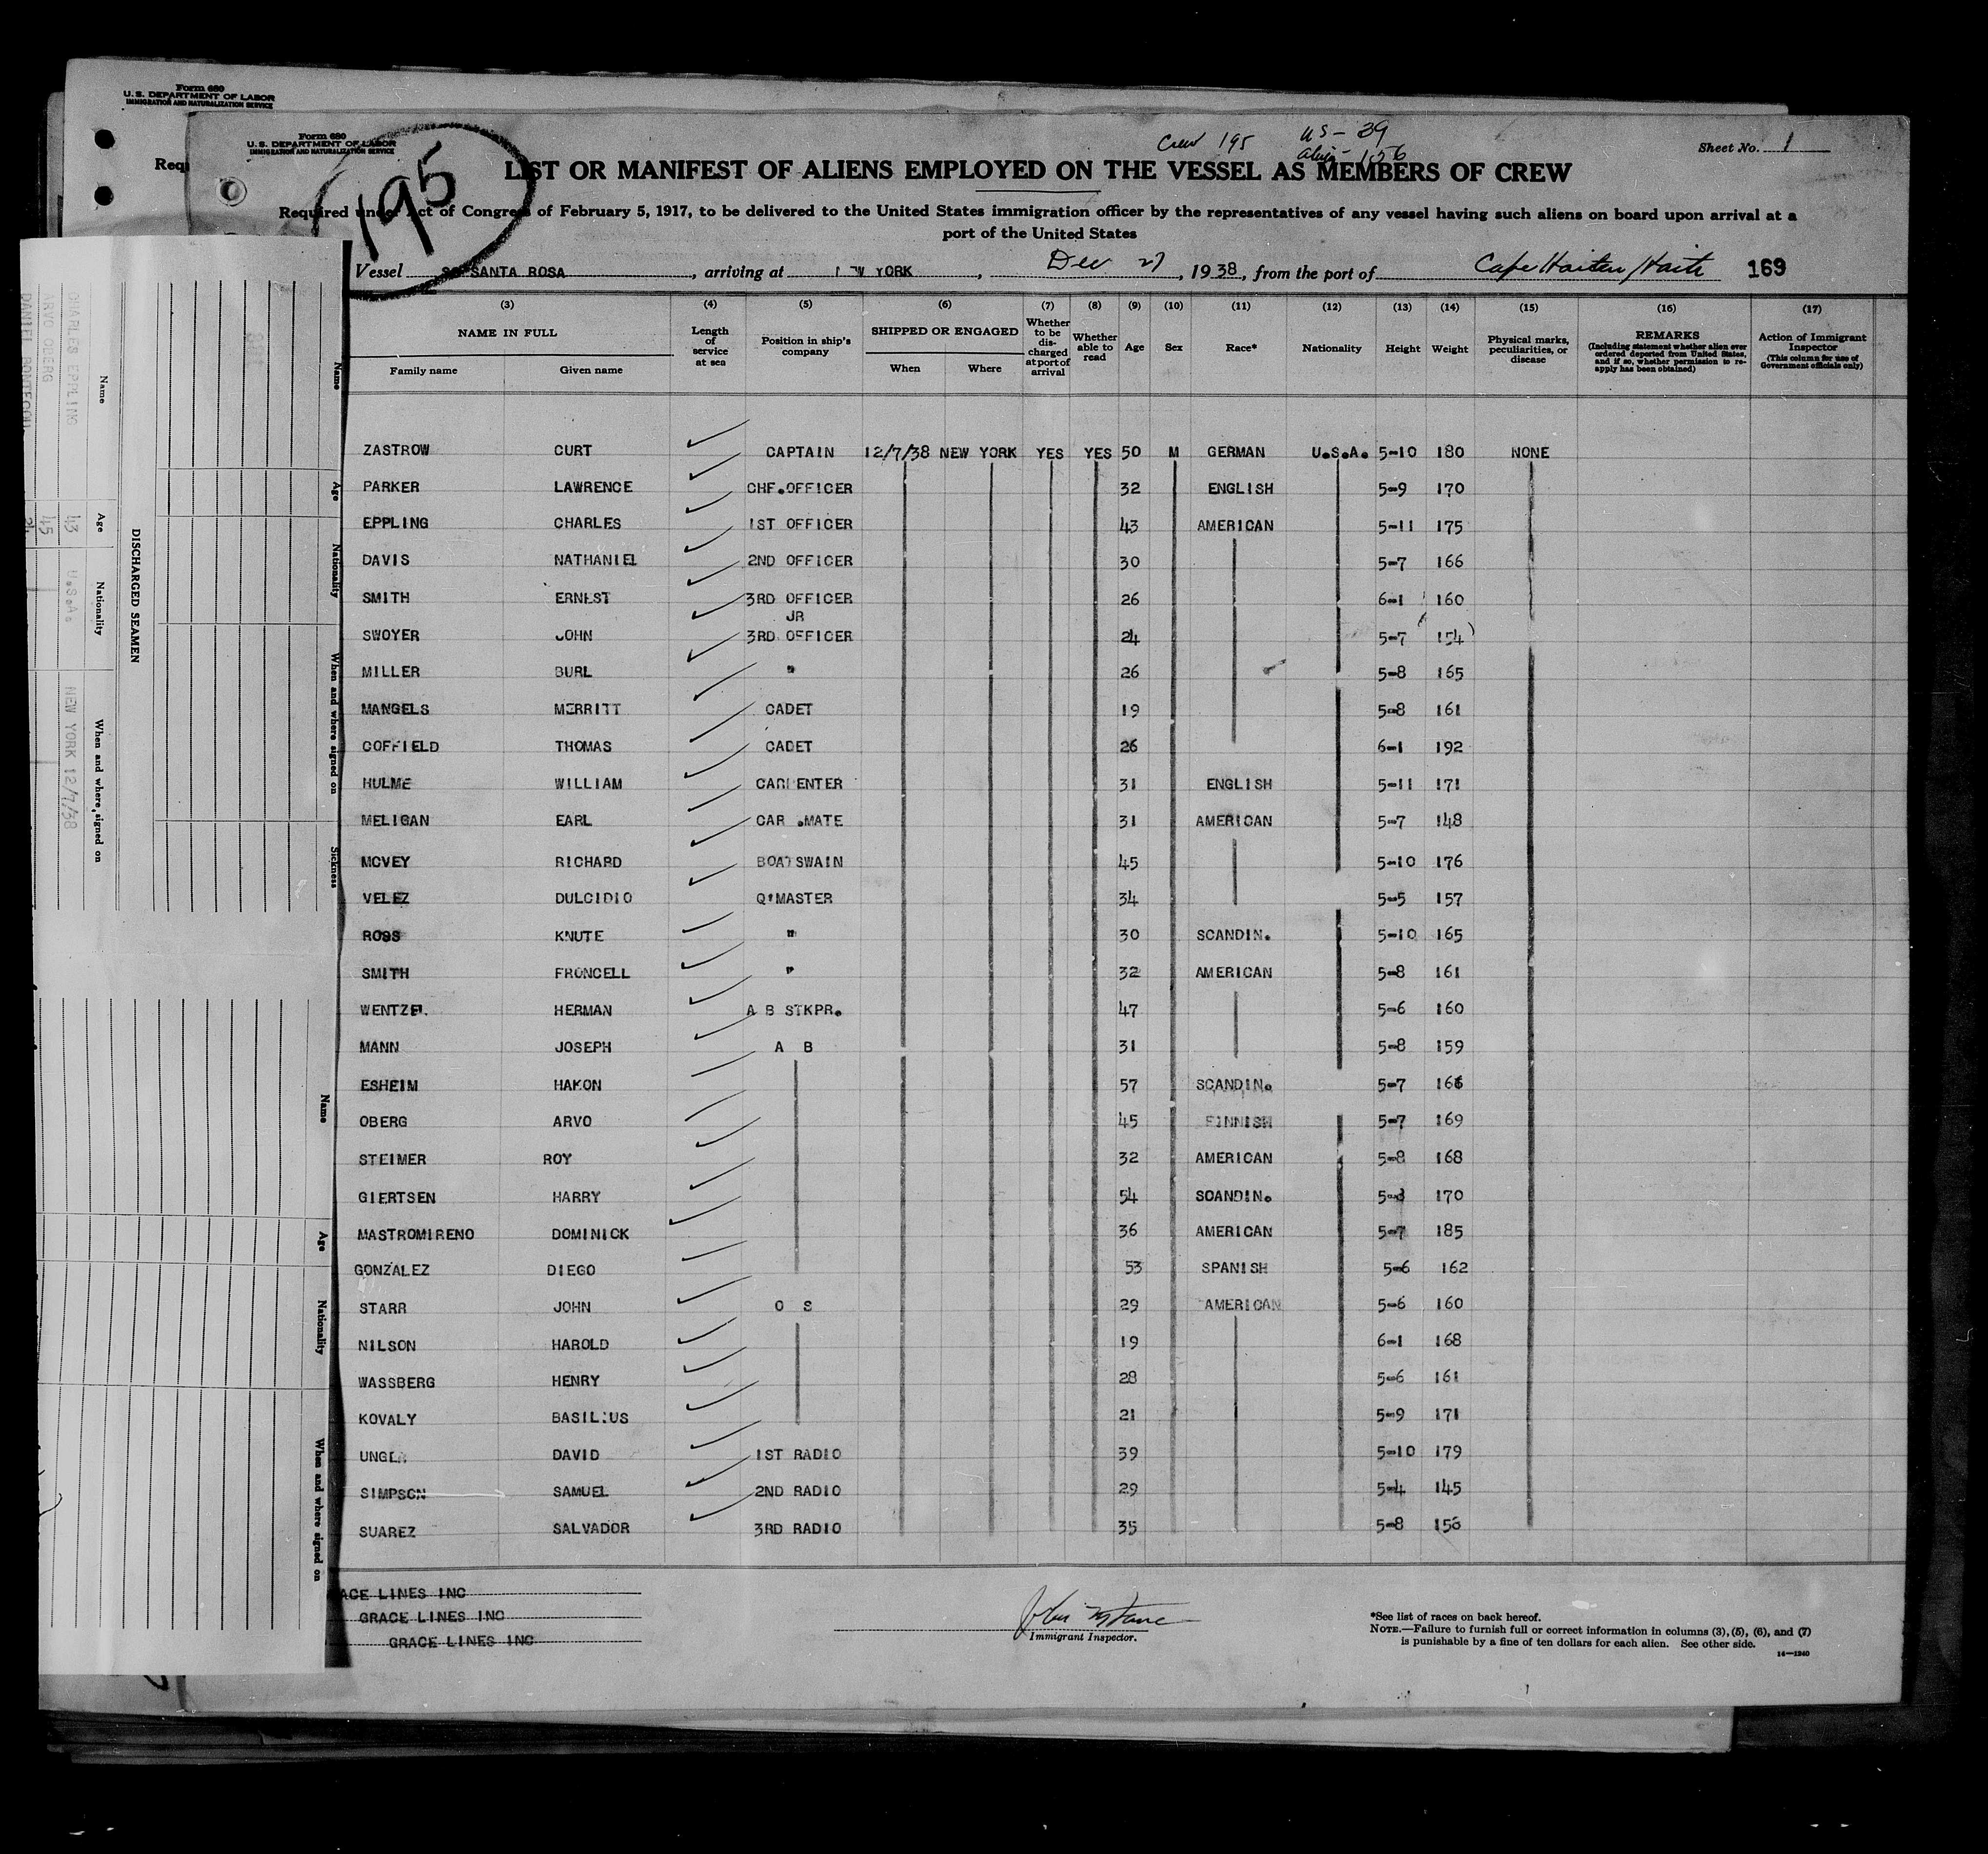 Form 680
U. S. DEPARTMENT OF LABOR
IMMIGRATION AND NATURALIZATION SERVICE
Form 680
U. S. DEPARTMENT OF LABOR
IMMIGRATION AND NATURALIZATION SERVICE
Requ
195
Crew 195 US - 39
Sheet No. 1
LIST OR MANIFEST OF ALIENS EMPLOYED ON THE VESSEL AS MEMBERS OF CREW
Required under Act of Congress of February 5, 1917, to be delivered to the United States immigration officer by the representatives of any vessel having such aliens on board upon arrival at a
port of the United States
Vessel SANTA ROSA, arriving at YORK, Dec 27, 1938, from the port of Cape Haitien Haiti 169
(3) (4) (5) (6) (7) (8) (9) (10) (11) (12) (13) (14) (15) (16) (17)
NAME IN FULL
Family name Given name
Length of service at sea
Position in ship's company
SHIPPED OR ENGAGED
When Where
Whether to be discharged at port of arrival
Whether able to read
Age
Sex
Race*
Nationality
Height
Weight
Physical marks, peculiarities, or disease
REMARKS
(Including statement whether alien ever ordered deported from United States, and if so, whether permission to reapply has been obtained)
Action of Immigrant Inspector
(This column for use of Government officials only)
ZASTROW CURT CAPTAIN 12/7/38 NEW YORK YES YES 50 M GERMAN U.S.A. 5-10 180 NONE
PARKER LAWRENCE CHF.OFFICER 32 ENGLISH 5-9 170
EPPLING CHARLES 1ST OFFICER 43 AMERICAN 5-11 175
DAVIS NATHANIEL 2ND OFFICER 30 5-7 166
SMITH ERNEST 3RD OFFICER 26 6-1 160
JR
SWOYER JOHN 3RD OFFICER 24 5-7 154
MILLER BURL " 26 5-8 165
MANGELS MERRITT CADET 19 5-8 161
COFFIELD THOMAS CADET 26 6-1 192
HULME WILLIAM CARPENTER 31 ENGLISH 5-11 171
MELIGAN EARL CAR .MATE 31 AMERICAN 5-7 148
MCVEY RICHARD BOATSWAIN 45 5-10 176
VELEZ DULCIDIO Q'MASTER 34 5-5 157
ROSS KNUTE " 30 SCANDIN. 5-10 165
SMITH FRONCELL " 32 AMERICAN 5-8 161
WENTZEL HERMAN A B STKPR. 47 5-6 160
MANN JOSEPH A B 31 5-8 159
ESHEIM HAKON 57 SCANDIN. 5-7 166
OBERG ARVO 45 FINNISH 5-7 169
STEIMER ROY 32 AMERICAN 5-8 168
GIERTSEN HARRY 54 SCANDIN. 5-8 170
MASTROMIRENO DOMINICK 36 AMERICAN 5-7 185
GONZALEZ DIEGO 53 SPANISH 5-6 162
STARR JOHN O S 29 AMERICAN 5-6 160
NILSON HAROLD 19 6-1 168
WASSBERG HENRY 28 5-6 161
KOVALY BASILIUS 21 5-9 171
DAVID 1ST RADIO 39 5-10 179
SIMPSON SAMUEL 2ND RADIO 29 5-4 145
SUAREZ SALVADOR 3RD RADIO 35 5-8 156
ACE LINES INC
GRACE LINES INC
GRACE LINES INC
Immigrant Inspector.
*See list of races on back hereof.
NOTE.—Failure to furnish full or correct information in columns (3), (5), (6), and (7)
is punishable by a fine of ten dollars for each alien. See other side.
14—1240
DISCHARGED SEAMEN
Name Age Nationality When and where signed on
CHARLES EPPLING 43 U.S.A. NEW YORK 12/7/38
ARVO OBERG 45
Name Age Nationality When and where signed on Sickness
Name Age Nationality When and where signed on